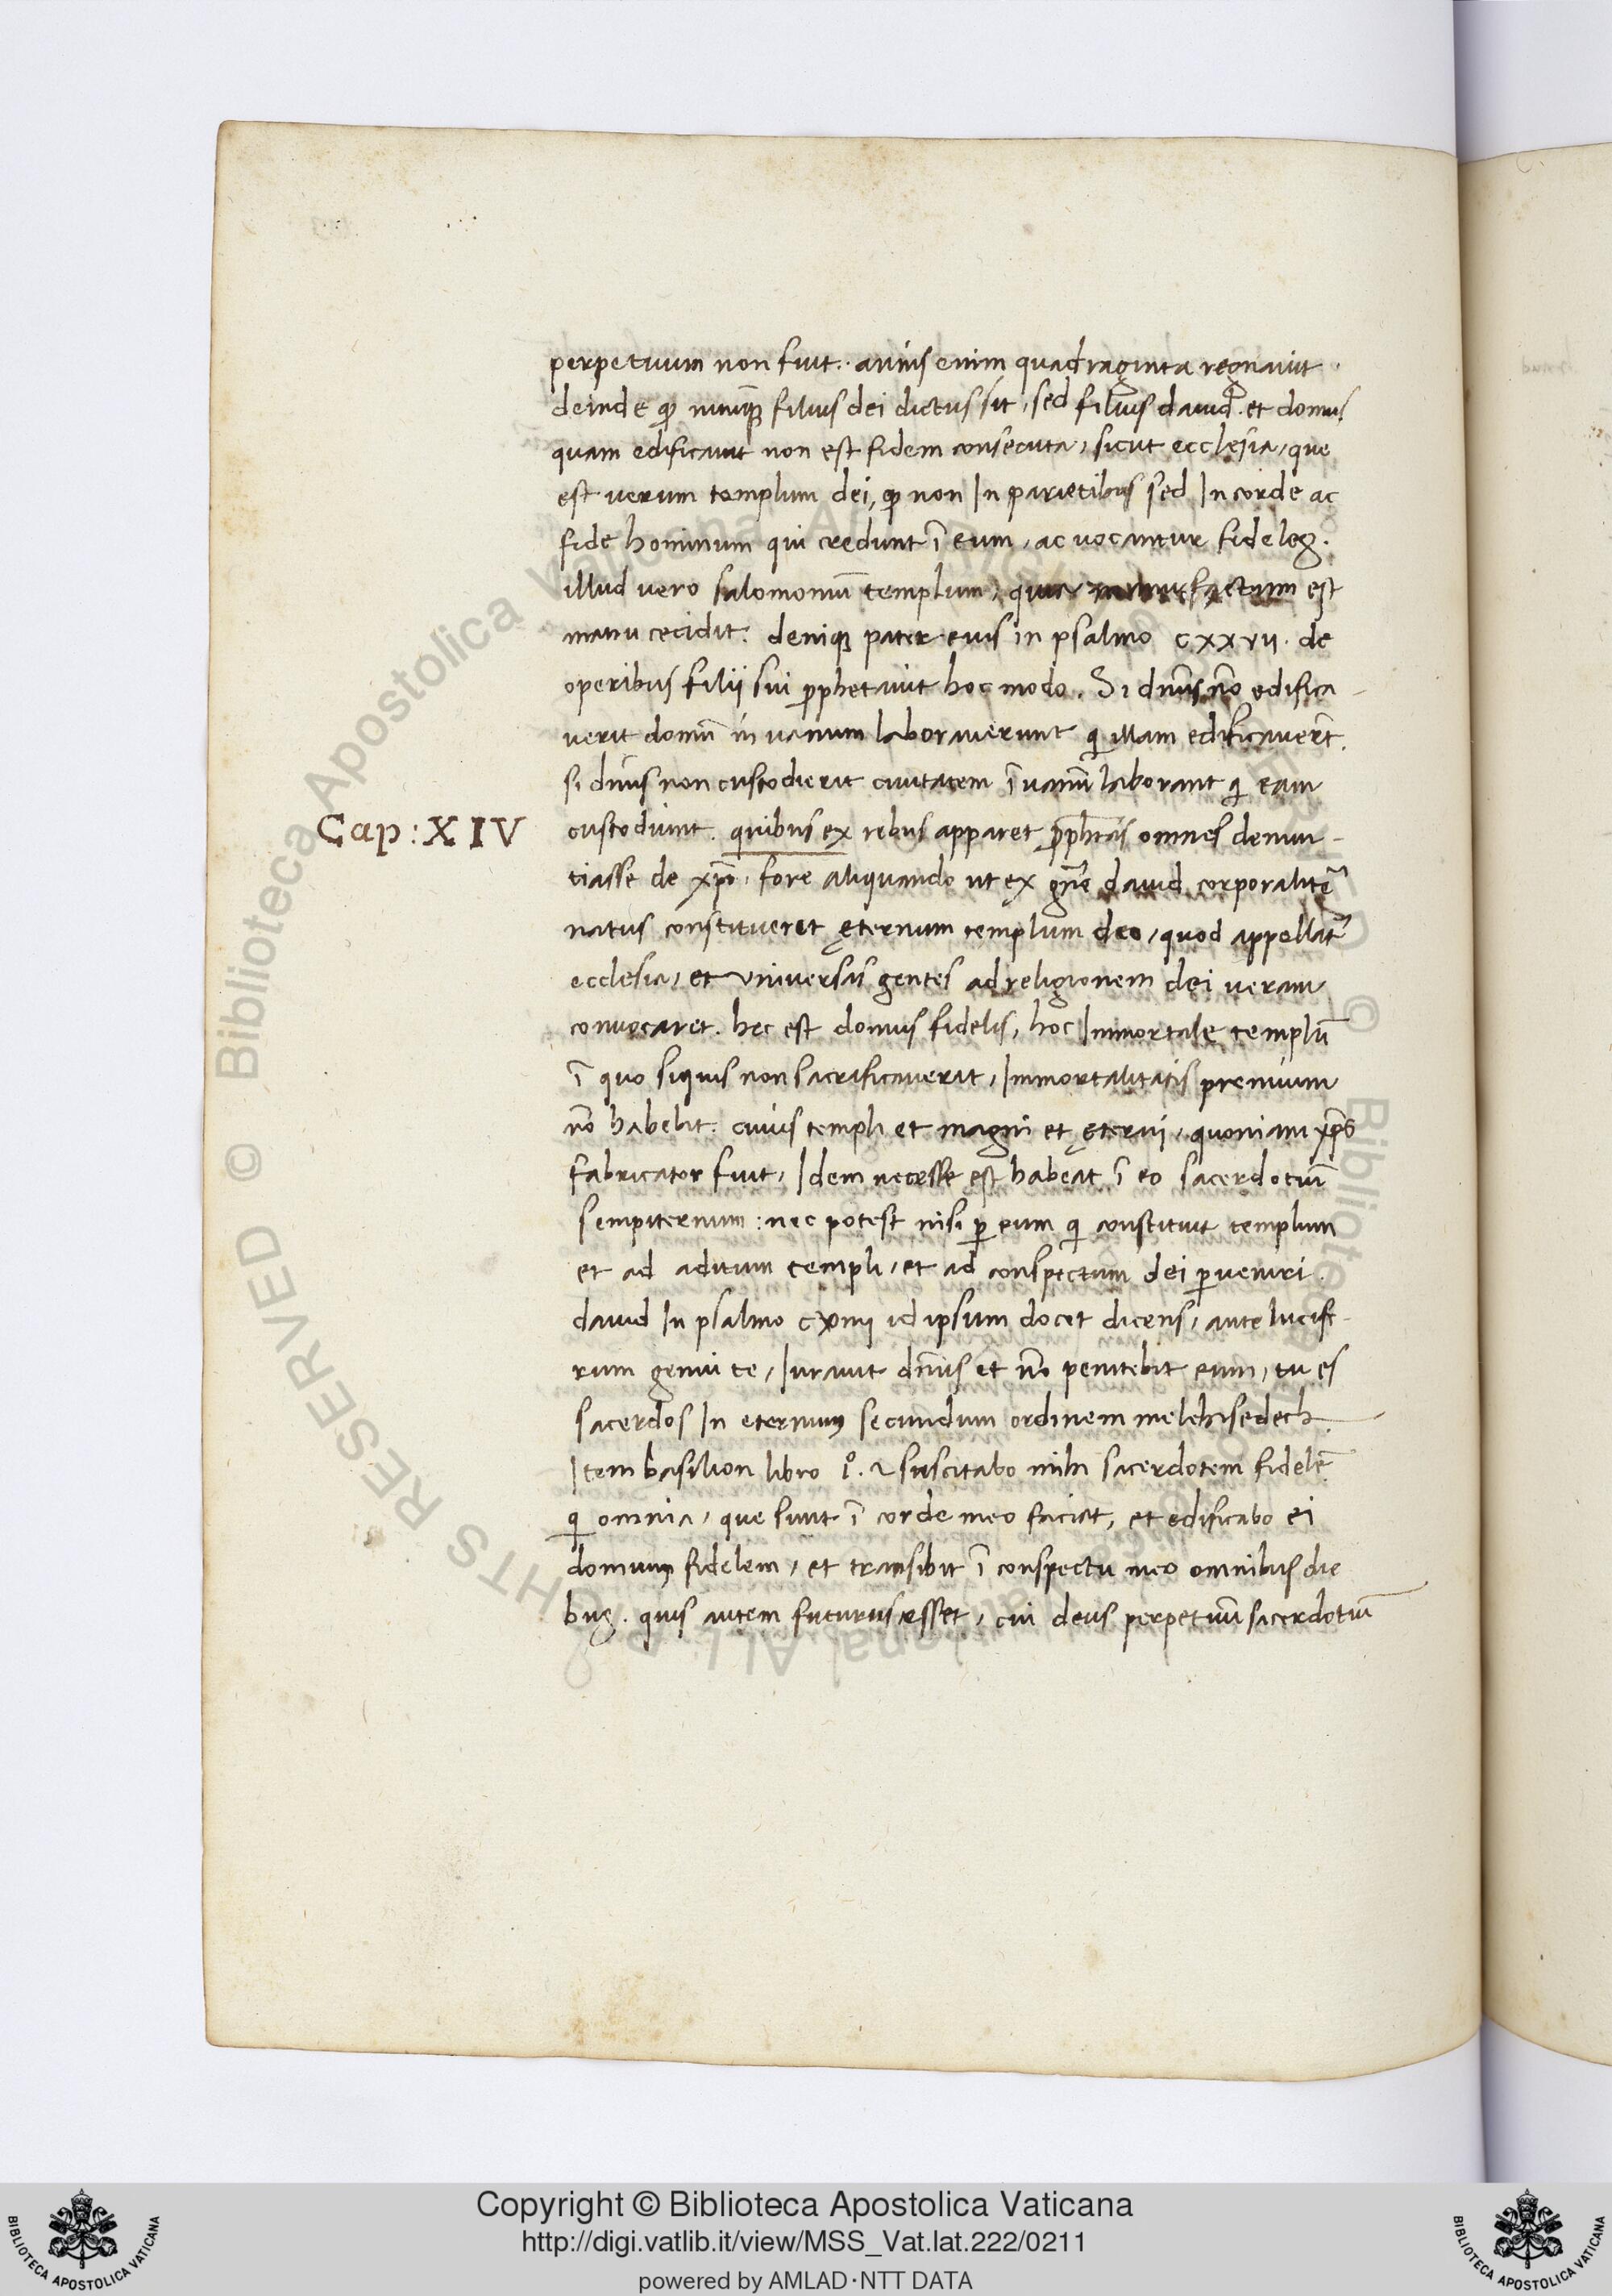 perpetuum non fuit. annis enim quadraginta regnauit.
deinde ꝙ nunꝗ̃ filius dei dictus sit, sed filius dauid. et domus
quam edificauit non est fidem consecuta, sicut ecclesia, que
est verum templum dei, ꝙ non In parietibus sed In corde ac
fide hominum qui credunt ī eum, ac uocantur fideles.
illud vero salomoniū templum, quia factum est
manu cecidit. deniqꝫ pater eius in psalmo cxxvii. de
operibus filii sui ꝓphetauit hoc modo. Si dn̄us nō edifica
verit domū in uanum laborauerunt q̄ illam edificauerūt.
si dn̄us non custodierit ciuitatem ī uanū laborant q̄ eam
Cap: XIV
custodiunt. quibus ex rebus apparet ꝓphetas omnes denun-
tiasse de xp̄o, fore aliquando ut ex gn̄e dauid corporalitē
natus constitueret ęternum templum deo, quod appellat̄
ecclesia, et vniversas gentes ad religionem dei ueram
conuocaret. hęc est domus fidelis, hoc Immortale templū
ī quo siquis non sacrificauerit, Immortalitatis premium
nō habebit. cuius templi et magni et ęterni, quoniam xp̄s
fabricator fuit, Idem necesse est habeat ī eo sacerdotiū
sempiternum: nec potest nisi ꝑ eum q̄ constituit templum
et ad aditum templi, et ad conspectum dei ꝑueniri.
dauid In psalmo id ipsum docet dicens, ante lucife-
rum genui te, Iurauit dn̄us et nō penitebit eum, tu es
sacerdos In eternum secundum ordinem melchisedech
Item basilion libro Iº. suscitabo mihi sacerdotem fidelē
q̄ omnia, que sunt ī corde meo faciat, et edificabo ei
domum fidelem, et transibit ī conspectu meo omnibus die
bus. quis autem futurus esset, cui deus perpetuū sacerdotiū
Copyright © Biblioteca Apostolica Vaticana
http://digi.vatlib.it/view/MSS_Vat.lat.222/0211
powered by AMLAD·NTT DATA
BIBLIOTECA APOSTOLICA VATICANA
BIBLIOTECA APOSTOLICA VATICANA